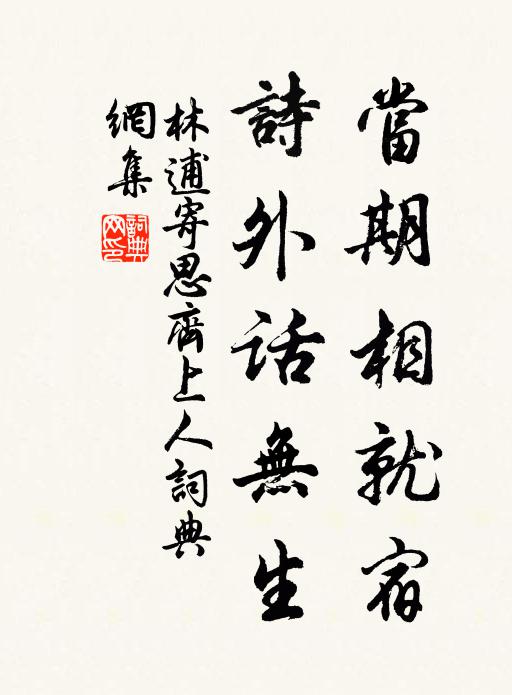 當期相就宿
詩外話無生
林逋寄思齊上人詞典
網集
詞典
网印